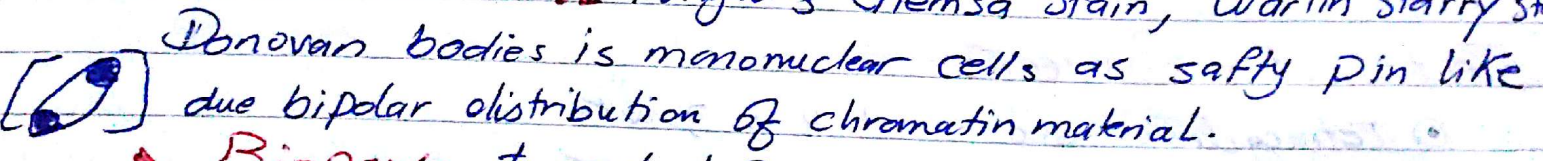 Giemsa stain, Warthin starry
Donovan bodies is mononuclear cells as safty pin like
due bipolar distribution of chromatin material.